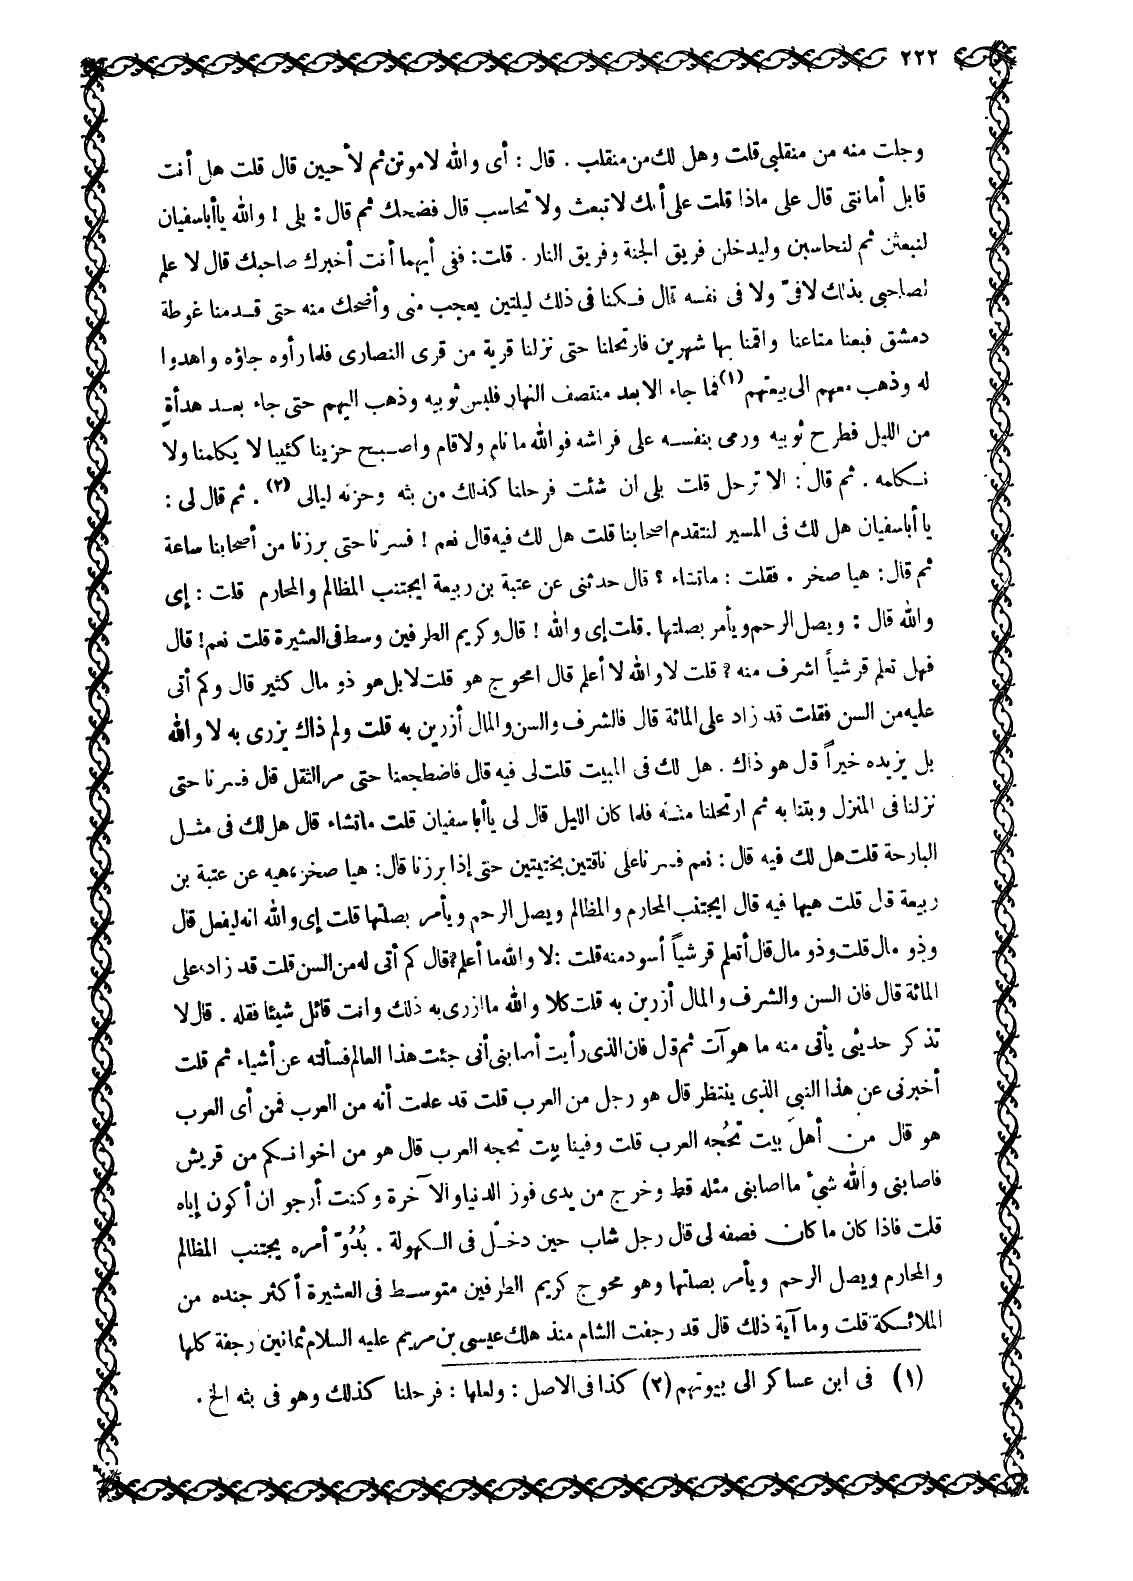 ٢٢٢
وجلت منه من منقلبى قلت وهل لك من منقلب . قال : أى والله لاموتن ثم لأحيين قال قلت هل أنت
قابل أمانتى قال على ماذا قلت على أنك لا تبعث ولا تحاسب قال فضحك ثم قال : بلى ! والله يا أبا سفيان
لنبعثن ثم لنحاسبن وليدخلن فريق الجنة وفريق النار . قلت : ففى أيهما أنت أخبرك صاحبك قال لا علم
لصاحبى بذلك لا فىّ ولا فى نفسه قال فكنا فى ذلك ليلتين يعجب منى وأضحك منه حتى قدمنا غوطة
دمشق فبعنا متاعنا واقمنا بها شهرين فارتحلنا حتى نزلنا قرية من قرى النصارى فلما رأوه جاؤه واهدوا
له وذهب معهم الى بيعتهم (١) فما جاء الا بعد منتصف النهار فلبس ثوبيه وذهب اليهم حتى جاء بعد هدأةٍ
من الليل فطرح ثوبيه ورمى بنفسه على فراشه فوالله ما نام ولا قام واصبح حزينا كئيبا لا يكلمنا ولا
نكلمه . ثم قال : الا ترحل قلت بلى ان شئت فرحلنا كذلك من بثه وحزنه ليالى (٢) . ثم قال لى :
يا أبا سفيان هل لك فى المسير لنتقدم اصحابنا قلت هل لك فيه قال نعم ! فسرنا حتى برزنا من أصحابنا ساعة
ثم قال : هيا صخر . فقلت : ما تشاء ؟ قال حدثنى عن عتبة بن ربيعة ايجتنب المظالم والمحارم قلت : إى
والله قال : ويصل الرحم ويأمر بصلتها . قلت إى والله ! قال وكريم الطرفين وسط فى العشيرة قلت نعم ! قال
فهل تعلم قرشياً اشرف منه ؟ قلت لا والله لا أعلم قال امحوج هو قلت لا بل هو ذو مال كثير قال وكم أتى
عليه من السن فقلت قد زاد على المائة قال فالشرف والسن والمال أزرين به قلت ولم ذاك يزرى به لا والله
بل يزيده خيراً قال هو ذاك . هل لك فى المبيت قلت لى فيه قال فاضطجعنا حتى مر الثقل قال فسرنا حتى
نزلنا فى المنزل وبتنا به ثم ارتحلنا منه فلما كان الليل قال لى يا أبا سفيان قلت ما تشاء قال هل لك فى مثل
البارحة قلت هل لك فيه قال : نعم فسرنا على ناقتين بختيتين حتى إذا برزنا قال : هيا صخر ، هيه عن عتبة بن
ربيعة قال قلت هيها فيه قال ايجتنب المحارم والمظالم ويصل الرحم ويأمر بصلتها قلت إى والله انه ليفعل قال
وذو مال قلت وذو مال قال أتعلم قرشياً أسود منه قلت : لا والله ما أعلم ؟ قال كم أتى له من السن قلت قد زاد على
المائة قال فان السن والشرف والمال أزرين به قلت كلا والله ما ازرى به ذلك وانت قائل شيئا فقله . قال لا
تذكر حديثى يأتى منه ما هو آت ثم قال فان الذى رأيت أصابنى أنى جئت هذا العالم فسألته عن أشياء ثم قلت
أخبرنى عن هذا النبى الذى ينتظر قال هو رجل من العرب قلت قد علمت أنه من العرب فمن أى العرب
هو قال من أهل بيت تحُجه العرب قلت وفينا بيت تحجه العرب قال هو من اخوانكم من قريش
فاصابنى والله شىء ما اصابنى مثله قط وخرج من يدى فوز الدنيا والآخرة وكنت أرجو ان أكون إياه
قلت فاذا كان ما كان فصفه لى قال رجل شاب حين دخل فى الكهولة . بُدُوّ أمره يجتنب المظالم
والمحارم ويصل الرحم ويأمر بصلتها وهو محوج كريم الطرفين متوسط فى العشيرة أكثر جنده من
الملائكة قلت وما آية ذلك قال قد رجفت الشام منذ هلك عيسى بن مريم عليه السلام ثمانين رجفة كلها
(١) فى ابن عساكر الى بيوتهم (٢) كذا فى الاصل : ولعلها : فرحلنا كذلك وهو فى بثه الخ .